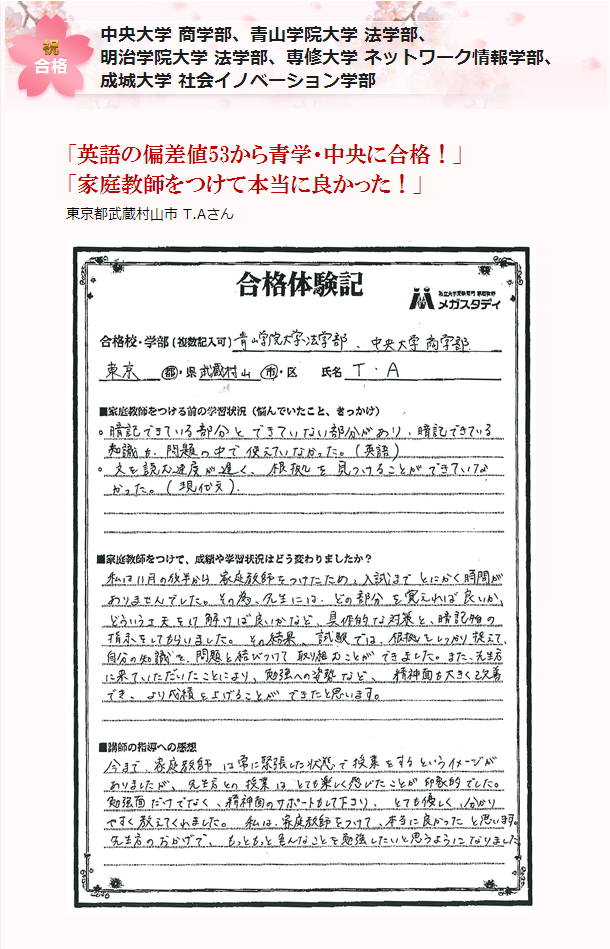 祝
合格
中央大学 商学部、青山学院大学 法学部、
明治学院大学 法学部、専修大学 ネットワーク情報学部、
成城大学 社会イノベーション学部
「英語の偏差値53から青学・中央に合格！」
「家庭教師をつけて本当に良かった！」
東京都武蔵村山市 T.Aさん
合格体験記
私立大学受験専門 家庭教師
メガスタディ
合格校・学部（複数記入可） 青山学院大学法学部、中央大学商学部
東京 都・県 武蔵村山 市・区 氏名 T・A
■家庭教師をつける前の学習状況（悩んでいたこと、きっかけ）
○暗記できている部分とできていない部分があり、暗記できている
知識も問題の中で使えていなかった。（英語）
○文を読む速度が遅く、根拠を見つけることができていな
かった。（現代文）
■家庭教師をつけて、成績や学習状況はどう変わりましたか？
私は11月の後半から家庭教師をつけたため、入試までとにかく時間が
ありませんでした。その為、先生には、どの部分を覚えれば良いか、
どういう工夫をけ解けば良いかなど、具体的な対策と、暗記物の
指示をしてもらいました。その結果、試験では、根拠をしっかり捉えて、
自分の知識を、問題と結びつけて取り組むことができました。また、先生方
に来ていただいたことにより、勉強への姿勢など、精神面も大きく改善
でき、より成績を上げることができたと思います。
■講師の指導への感想
今まで、家庭教師は常に緊張した状態で授業をするというイメージが
ありましたが、先生方との授業はとても楽しく感じたことが印象的でした。
勉強面だけでなく、精神面のサポートもして下さり、とても優しく、分かり
やすく教えてくれました。私は、家庭教師をつけて、本当に良かったと思います。
先生方のおかげで、もっともっと色んなことを勉強したいと思うようになりました